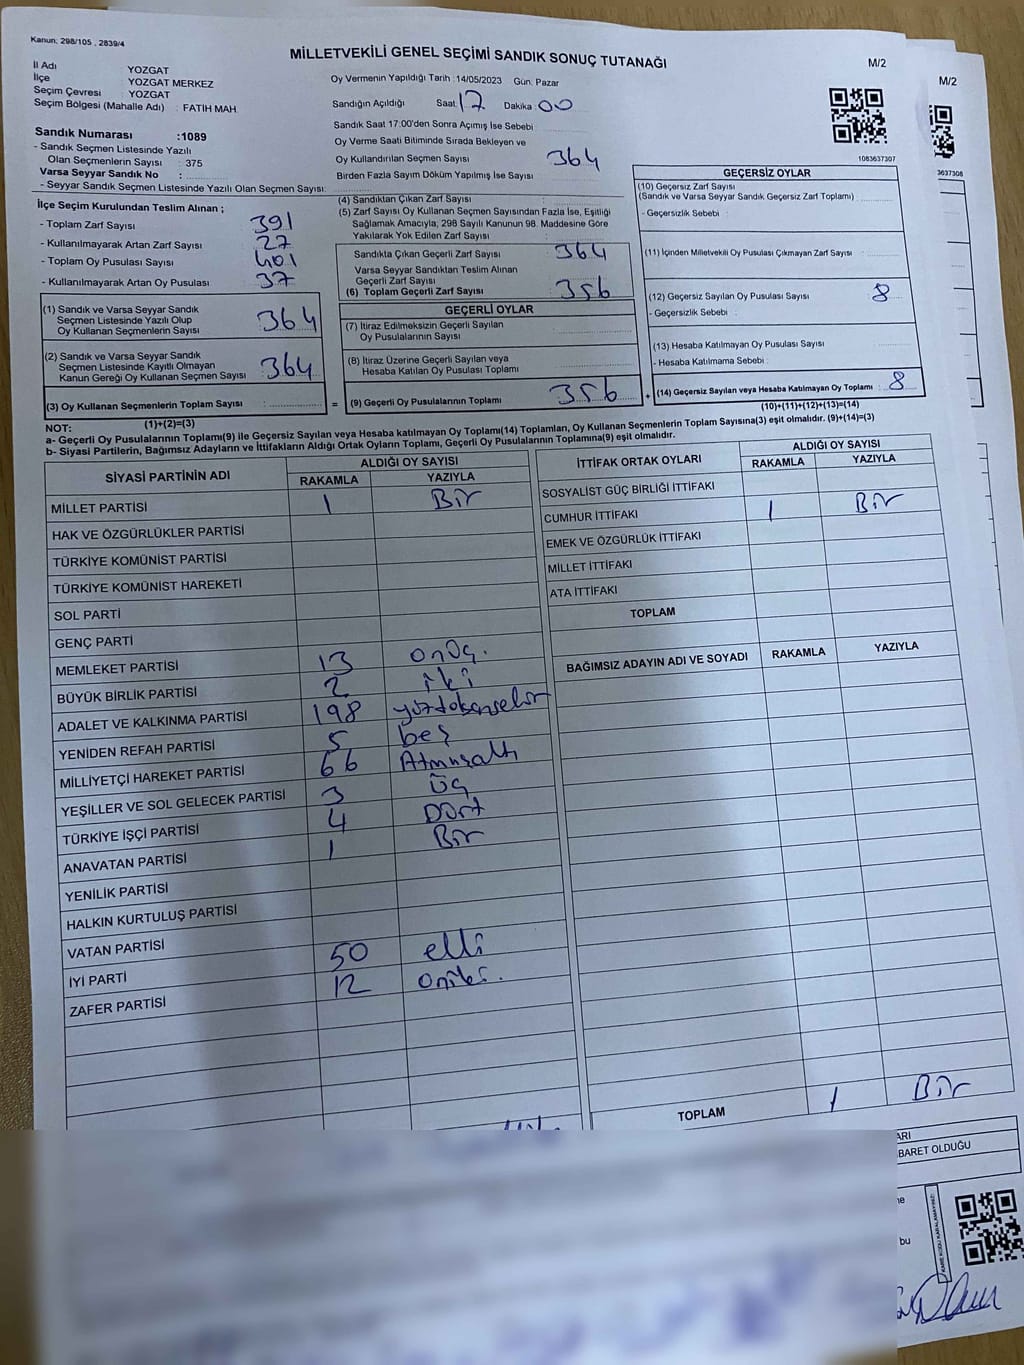 Kanun: 298/105 , 2839/4
MİLLETVEKİLİ GENEL SEÇİMİ SANDIK SONUÇ TUTANAĞI
M/2
M/2
İl Adı YOZGAT
İlçe YOZGAT MERKEZ
Seçim Çevresi : YOZGAT
Seçim Bölgesi (Mahalle Adı) : FATİH MAH.
Oy Vermenin Yapıldığı Tarih :14/05/2023 Gün: Pazar
Sandığın Açıldığı Saat: 17 Dakika: 00
Sandık Saat 17:00'den Sonra Açımış İse Sebebi:
Oy Verme Saati Bitiminde Sırada Bekleyen ve
Oy Kullandırılan Seçmen Sayısı 364
Birden Fazla Sayım Döküm Yapılmış İse Sayısı
1083637307
3637308
Sandık Numarası :1089
- Sandık Seçmen Listesinde Yazılı
Olan Seçmenlerin Sayısı : 375
Varsa Seyyar Sandık No :
- Seyyar Sandık Seçmen Listesinde Yazılı Olan Seçmen Sayısı:
İlçe Seçim Kurulundan Teslim Alınan ;
- Toplam Zarf Sayısı 391
- Kullanılmayarak Artan Zarf Sayısı 27
- Toplam Oy Pusulası Sayısı 401
- Kullanılmayarak Artan Oy Pusulası 37
(1) Sandık ve Varsa Seyyar Sandık
Seçmen Listesinde Yazılı Olup
Oy Kullanan Seçmenlerin Sayısı 364
(2) Sandık ve Varsa Seyyar Sandık
Seçmen Listesinde Kayıtlı Olmayan
Kanun Gereği Oy Kullanan Seçmen Sayısı 364
(3) Oy Kullanan Seçmenlerin Toplam Sayısı :
(1)+(2)=(3)
(4) Sandıktan Çıkan Zarf Sayısı :
(5) Zarf Sayısı Oy Kullanan Seçmen Sayısından Fazla İse, Eşitliği
Sağlamak Amacıyla; 298 Sayılı Kanunun 98. Maddesine Göre
Yakılarak Yok Edilen Zarf Sayısı
Sandıkta Çıkan Geçerli Zarf Sayısı 364
Varsa Seyyar Sandıktan Teslim Alınan
Geçerli Zarf Sayısı
(6) Toplam Geçerli Zarf Sayısı : 356
GEÇERLİ OYLAR
(7) İtiraz Edilmeksizin Geçerli Sayılan
Oy Pusulalarının Sayısı
(8) İtiraz Üzerine Geçerli Sayılan veya
Hesaba Katılan Oy Pusulası Toplamı
= (9) Geçerli Oy Pusulalarının Toplamı 356
GEÇERSİZ OYLAR
(10) Geçersiz Zarf Sayısı
(Sandık ve Varsa Seyyar Sandık Geçersiz Zarf Toplamı)
- Geçersizlik Sebebi :
(11) İçinden Milletvekili Oy Pusulası Çıkmayan Zarf Sayısı
(12) Geçersiz Sayılan Oy Pusulası Sayısı 8
- Geçersizlik Sebebi :
(13) Hesaba Katılmayan Oy Pusulası Sayısı
- Hesaba Katılmama Sebebi :
+ (14) Geçersiz Sayılan veya Hesaba Katılmayan Oy Toplamı : 8
(10)+(11)+(12)+(13)=(14)
NOT:
a- Geçerli Oy Pusulalarının Toplamı(9) ile Geçersiz Sayılan veya Hesaba katılmayan Oy Toplamı(14) Toplamları, Oy Kullanan Seçmenlerin Toplam Sayısına(3) eşit olmalıdır. (9)+(14)=(3)
b- Siyasi Partilerin, Bağımsız Adayların ve İttifakların Aldığı Ortak Oyların Toplamı, Geçerli Oy Pusulalarının Toplamına(9) eşit olmalıdır.
SİYASİ PARTİNİN ADI ALDIĞI OY SAYISI
RAKAMLA YAZIYLA
MİLLET PARTİSİ 1 Bir
HAK VE ÖZGÜRLÜKLER PARTİSİ
TÜRKİYE KOMÜNİST PARTİSİ
TÜRKİYE KOMÜNİST HAREKETİ
SOL PARTİ
GENÇ PARTİ
MEMLEKET PARTİSİ 13 onüç.
BÜYÜK BİRLİK PARTİSİ 2 iki
ADALET VE KALKINMA PARTİSİ 198 yüzdoksansekiz
YENİDEN REFAH PARTİSİ 5 beş
MİLLİYETÇİ HAREKET PARTİSİ 66 Atmışaltı
YEŞİLLER VE SOL GELECEK PARTİSİ 3 üç
TÜRKİYE İŞÇİ PARTİSİ 4 Dört
ANAVATAN PARTİSİ 1 Bir
YENİLİK PARTİSİ
HALKIN KURTULUŞ PARTİSİ
VATAN PARTİSİ
İYİ PARTİ 50 elli
ZAFER PARTİSİ 12 oniki.
İTTİFAK ORTAK OYLARI ALDIĞI OY SAYISI
RAKAMLA YAZIYLA
SOSYALİST GÜÇ BİRLİĞİ İTTİFAKI
CUMHUR İTTİFAKI 1 Bir
EMEK VE ÖZGÜRLÜK İTTİFAKI
MİLLET İTTİFAKI
ATA İTTİFAKI
TOPLAM
BAĞIMSIZ ADAYIN ADI VE SOYADI RAKAMLA YAZIYLA
TOPLAM 1 Bir
ARI
BARET OLDUĞU
bu